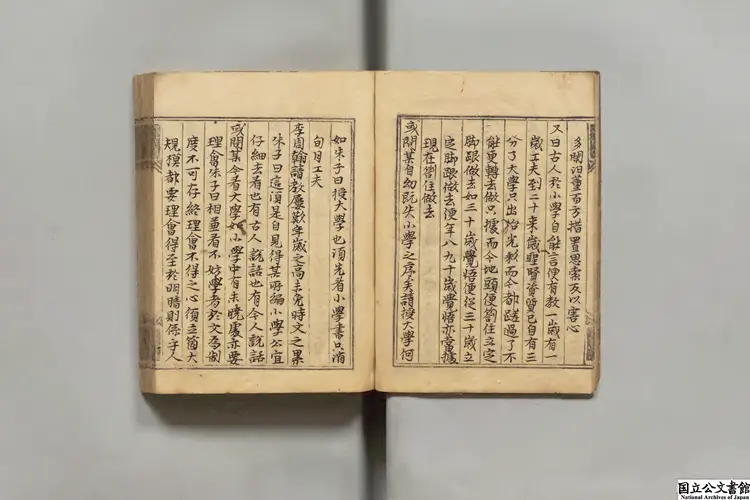 多閑汨董百方措置思索反以害心
又曰古人於小學自能言便有教一歲有一
歲工夫到二十來歲聖賢資質已自有三
分了大學只出治光彩而今都蹉過了不
能更轉去做只據而今地頭便劄住立定
脚跟做去如三十歲覺悟便從三十歲立
定脚跟做去便年八九十歲覺悟亦當據
現在劄住做去
或問某自幼既失小學之序矣請授大學何
如朱子曰授大學也須先看小學書只消
旬月工夫
李周翰請教屢歎年歲之高未免時文之累
朱子曰這須是自見得某所編小學公宜
仔細去看也有古人說話也有今人說話
或問某今看大學如小學中有未曉處亦要
理會朱子曰相兼看不妨學者於文為制
度不可存終理會不得之心須立箇大
規模都要理會得至於明暗則係乎人
国立公文書館
National Archives of Japan